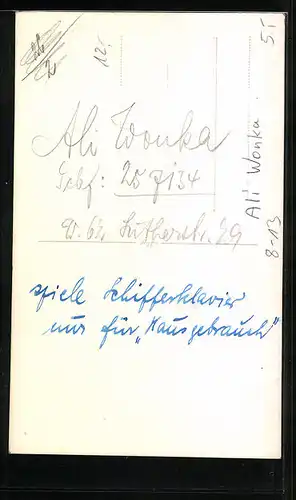 12,-
5,-
Ali Wonka
25 7134
W. 62, Lutherstr. 29
spiele Schifferklavier
nur für „Hausgebrauch"
Ali Wonka.
8-13